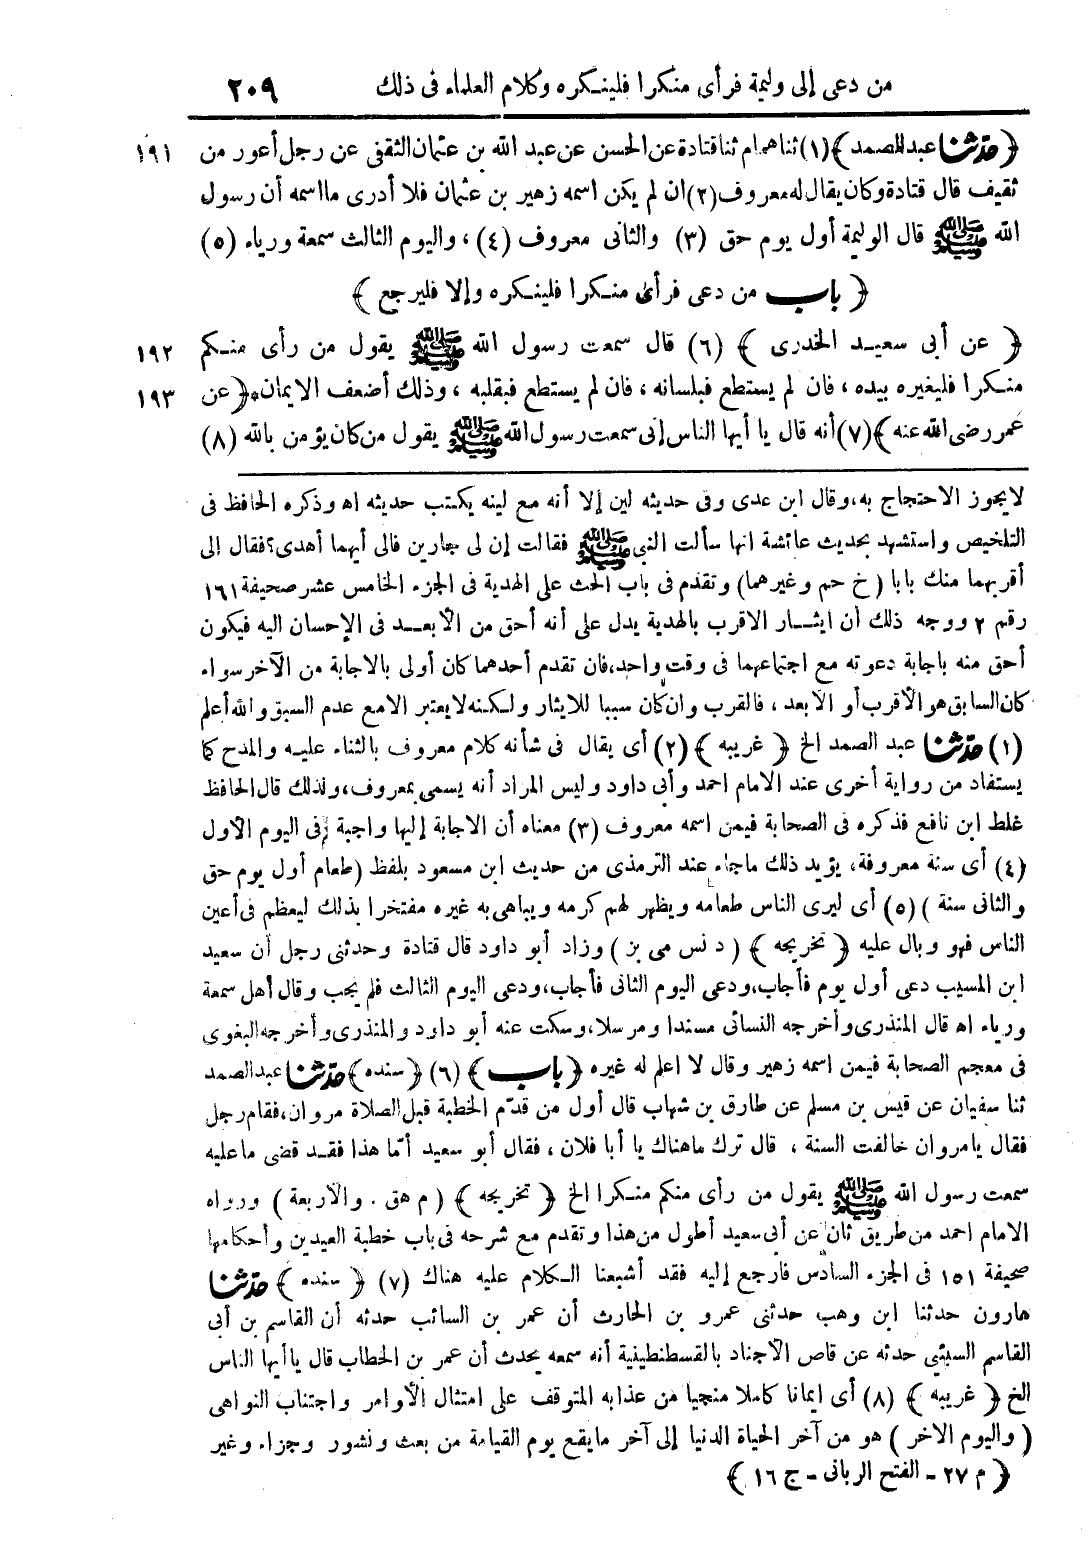 من دعى إلى وليمة فرأى منكرا فلينكره وكلام العلماء فى ذلك ٢٠٩
﴿ حدّثنا عبد الصمد ﴾ (١) ثنا همام ثنا قتادة عن الحسن عن عبد الله بن عثمان الثقفى عن رجل أعور من ١٩١
ثقيف قال قتادة وكان يقال له معروف (٢) ان لم يكن اسمه زهير بن عثمان فلا أدرى ما اسمه أن رسول
الله ﷺ قال الوليمة أول يوم حق (٣) والثانى معروف (٤) ، واليوم الثالث سمعة ورياء (٥)
﴿ باب من دعى فرأى منكرا فلينكره وإلا فليرجع ﴾
﴿ عن أبى سعيد الخدرى ﴾ (٦) قال سمعت رسول الله ﷺ يقول من رأى منكم ١٩٢
منكرا فليغيره بيده ، فان لم يستطع فبلسانه ، فان لم يستطع فبقلبه ، وذلك أضعف الايمان * ﴿ عن ١٩٣
عمر رضى الله عنه ﴾ (٧) أنه قال يا أيها الناس إنى سمعت رسول الله ﷺ يقول من كان يؤمن بالله (٨)
لايجوز الاحتجاج به، وقال ابن عدى وفى حديثه لين إلا أنه مع لينه يكتب حديثه اه وذكره الحافظ فى
التلخيص واستشهد بحديث عائشة انها سألت النبى ﷺ فقالت إن لى جارين فالى أيهما أهدى؟ فقال إلى
أقربهما منك بابا ( خ حم وغيرهما) وتقدم فى باب الحث على الهدية فى الجزء الخامس عشر صحيفة ١٦١
رقم ٢ ووجه ذلك أن ايثار الاقرب بالهدية يدل على أنه أحق من الأبعد فى الإحسان اليه فيكون
أحق منه باجابة دعوته مع اجتماعهما فى وقت واحد، فان تقدم أحدهما كان أولى بالاجابة من الآخر سواء
كان السابق هو الأقرب أو الابعد ، فالقرب وان كان سببا للايثار ولكنه لايعتبر الامع عدم السبق والله أعلم
(١) حدّثنا عبد الصمد الخ ﴿ غريبه ﴾ (٢) أى يقال فى شأنه كلام معروف بالثناء عليه والمدح كما
يستفاد من رواية أخرى عند الامام احمد وأبى داود وليس المراد أنه يسمى بمعروف، ولذلك قال الحافظ
غلط ابن نافع فذكره فى الصحابة فيمن اسمه معروف (٣) معناه أن الاجابة إليها واجبة فى اليوم الأول
(٤) أى سنة معروفة، يؤيد ذلك ماجاء عند الترمذى من حديث ابن مسعود بلفظ (طعام أول يوم حق
والثانى سنة ) (٥) أى ليرى الناس طعامه ويظهر لهم كرمه ويباهى به غيره مفتخرا بذلك ليعظم فى أعين
الناس فهو وبال عليه ﴿ تخريجه ﴾ ( د نس مى بز ) وزاد أبو داود قال قتادة وحدثنى رجل أن سعيد
ابن المسيب دعى أول يوم فأجاب، ودعى اليوم الثانى فأجاب، ودعى اليوم الثالث فلم يجب وقال أهل سمعة
ورياء اه قال المنذرى وأخرجه النسائى مسندا ومرسلا، وسكت عنه أبو داود والمنذرى وأخرجه البغوى
فى معجم الصحابة فيمن اسمه زهير وقال لا اعلم له غيره ﴿ باب ﴾ (٦) ﴿ سنده ﴾ حدّثنا عبد الصمد
ثنا سفيان عن قيس بن مسلم عن طارق بن شهاب قال أول من قدّم الخطبة قبل الصلاة مروان، فقام رجل
فقال يامروان خالفت السنة ، قال ترك ماهناك يا أبا فلان ، فقال أبو سعيد أمّا هذا فقد قضى ما عليه
سمعت رسول الله ﷺ يقول من رأى منكم منكرا الخ ﴿ تخريجه ﴾ ( م هق . والأربعة ) ورواه
الامام احمد من طريق ثان عن أبى سعيد أطول من هذا وتقدم مع شرحه فى باب خطبة العيدين وأحكامها
صحيفة ١٥١ فى الجزء السادس فارجع إليه فقد أشبعنا الكلام عليه هناك (٧) ﴿ سنده ﴾ حدّثنا
هارون حدثنا ابن وهب حدثنى عمرو بن الحارث أن عمر بن السائب حدثه أن القاسم بن أبى
القاسم السبئي حدثه عن قاص الأجناد بالقسطنطينية أنه سمعه يحدث أن عمر بن الخطاب قال ياأيها الناس
الخ ﴿ غريبه ﴾ (٨) أى ايمانا كاملا منجيا من عذابه المتوقف على امتثال الأوامر واجتناب النواهى
( واليوم الاخر ) هو من آخر الحياة الدنيا إلى آخر مايقع يوم القيامة من بعث ونشور وجزاء وغير
﴿ م ٢٧ - الفتح الربانى - ج ١٦ ﴾